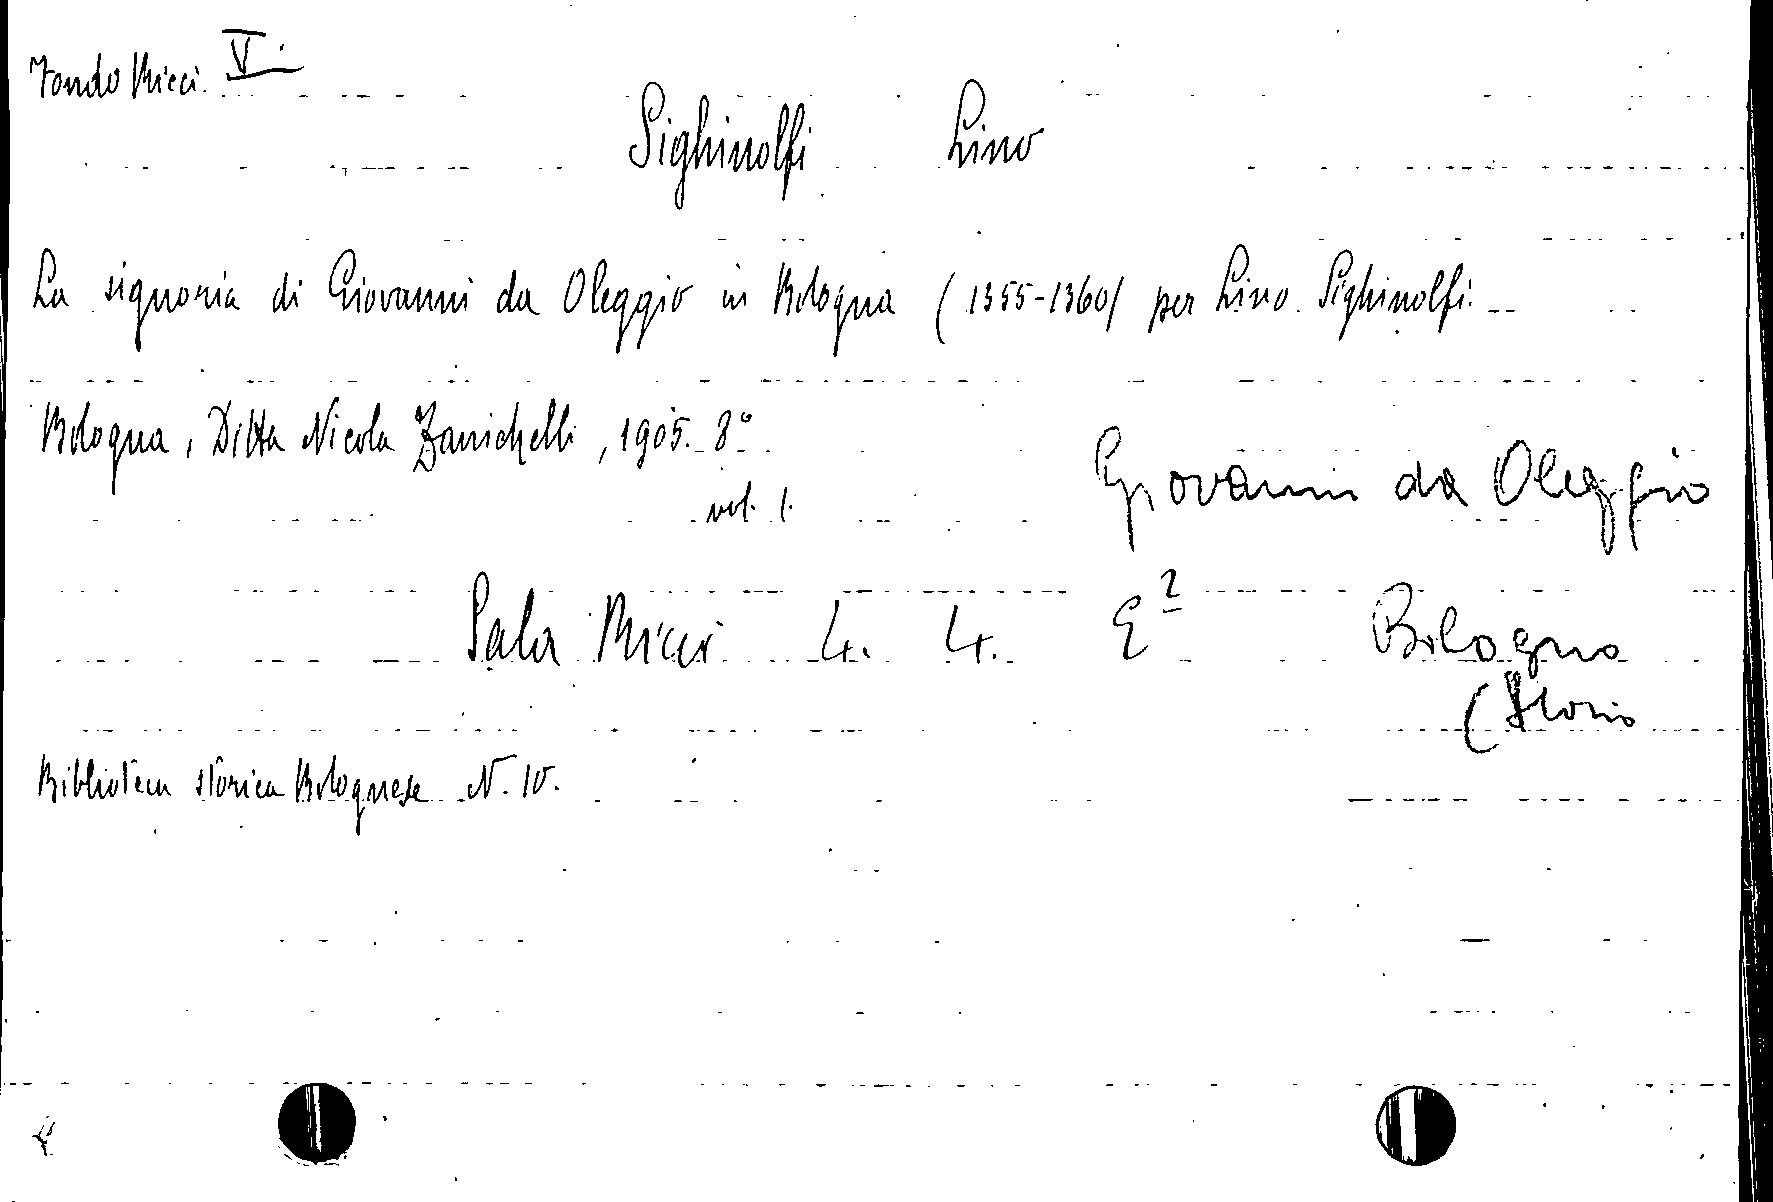 Fondo Ricci V
Sighinolfi Lino
La signoria di Giovanni da Oleggio in Bologna (1355-1360) per Lino Sighinolfi.
Bologna, Ditta Nicola Zanichelli, 1905. 8°
vol. 1.
Giovanni da Oleggio
Sala Ricci 4. 4. E²
Bologna
(Storia
Biblioteca storica Bolognese N. 10.